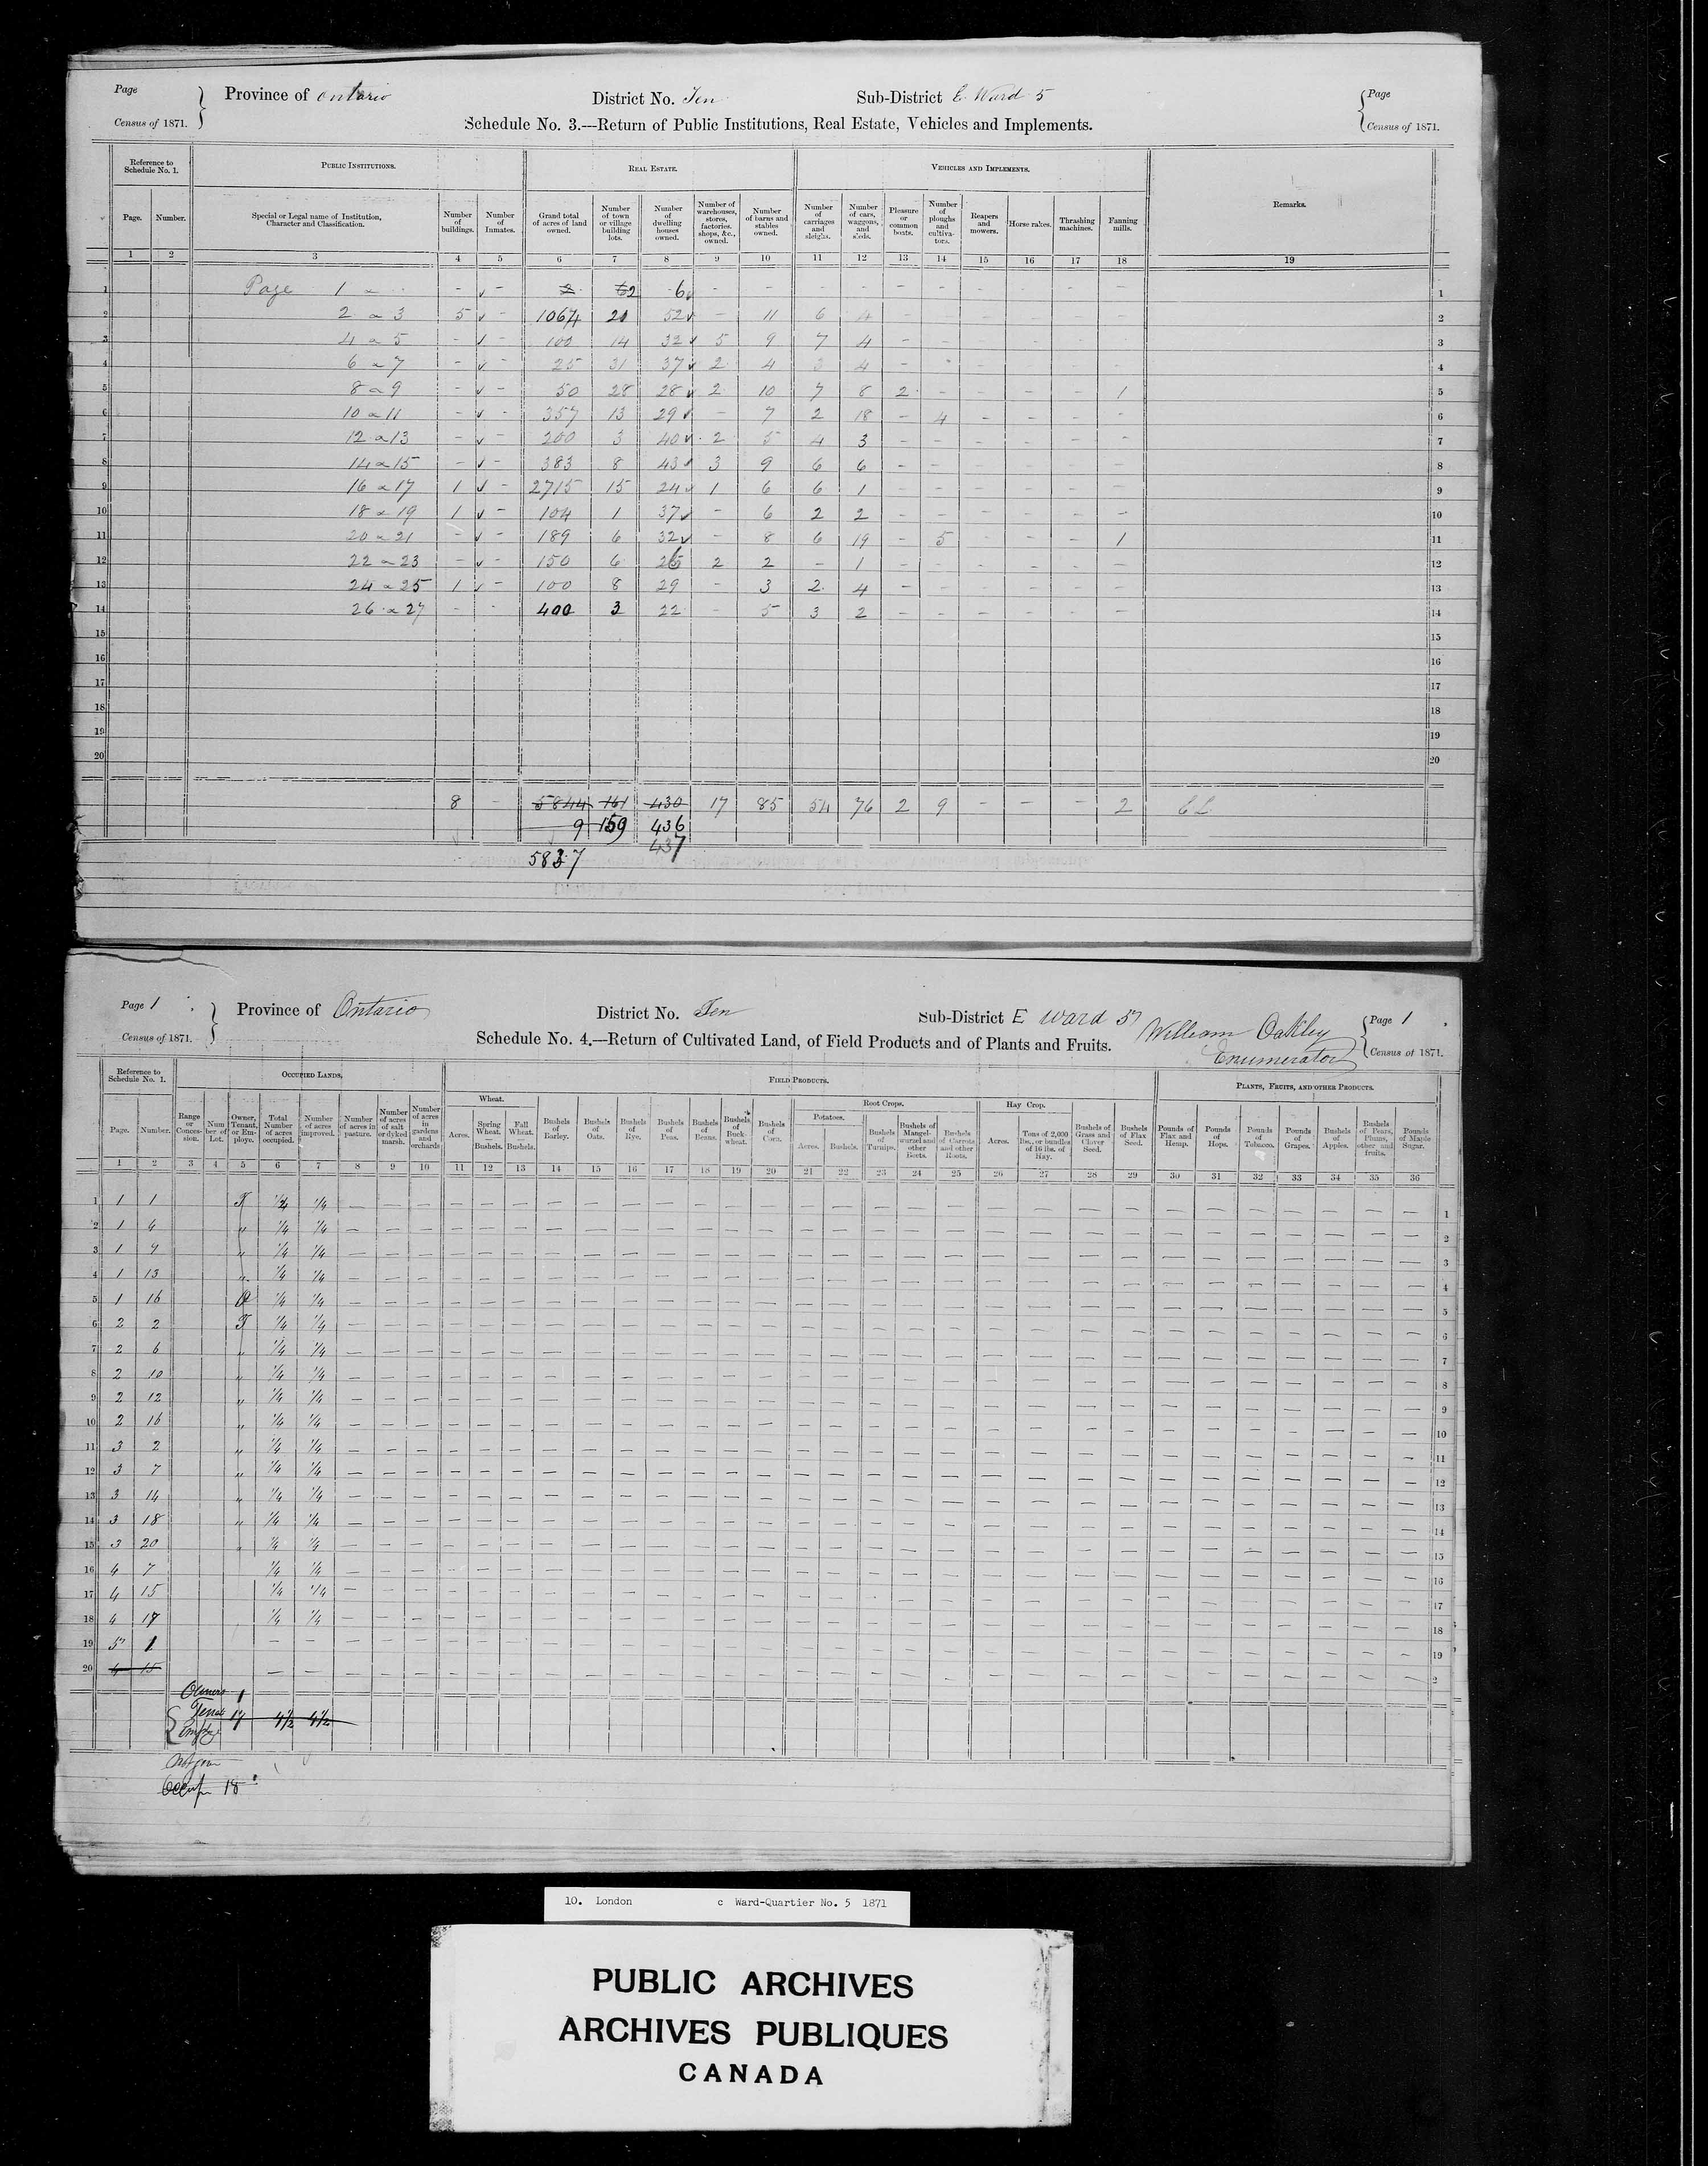 Page
Census of 1871.
Province of Ontario
District No. Ten
Sub-District E. Ward 5
Page
Census of 1871.
Schedule No. 3.---Return of Public Institutions, Real Estate, Vehicles and Implements.
Reference to Schedule No. 1. PUBLIC INSTITUTIONS. REAL ESTATE. VEHICLES AND IMPLEMENTS. Remarks.
Page. Number. Special or Legal name of Institution, Character and Classification. Number of buildings. Number of Inmates. Grand total of acres of land owned. Number of town or village building lots. Number of dwelling houses owned. Number of warehouses, stores, factories. shops, &c., owned. Number of barns and stables owned. Number of carriages and sleighs. Number of cars, waggons, and sleds. Pleasure or common boats. Number of ploughs and cultiva-tors. Reapers and mowers. Horse rakes. Thrashing machines. Fanning mills.
1 2 3 4 5 6 7 8 9 10 11 12 13 14 15 16 17 18 19
1 Page 1 - ✓ - 2 2 6✓ - - - - - - - - - - 1
2 2 a 3 5 ✓ - 1064 21 52✓ - 11 6 4 - - - - - - 2
3 4 a 5 - ✓ - 100 14 32✓ 5 9 7 4 - - - - - - 3
4 6 a 7 - ✓ - 25 31 37✓ 2 4 3 4 - - - - - - 4
5 8 a 9 - ✓ - 50 28 28✓ 2 10 7 8 2 - - - - 1 5
6 10 a 11 - ✓ - 357 13 29✓ - 7 2 18 - 4 - - - - 6
7 12 a 13 - ✓ - 200 3 40✓ 2 5 4 3 - - - - - - 7
8 14 a 15 - ✓ - 383 8 43✓ 3 9 6 6 - - - - - - 8
9 16 a 17 1 ✓ - 2715 15 24✓ 1 6 6 1 - - - - - - 9
10 18 a 19 1 ✓ - 104 1 37✓ - 6 2 2 - - - - - - 10
11 20 a 21 - ✓ - 189 6 32✓ - 8 6 19 - 5 - - - 1 11
12 22 a 23 - ✓ - 150 6 26 2 2 - 1 - - - - - - 12
13 24 a 25 1 ✓ - 100 8 29 - 3 2 4 - - - - - - 13
14 26 a 27 - - 400 3 22 - 5 3 2 - - - - - - 14
15 15
16 16
17 17
18 18
19 19
20 20
8 - 5844 161 430 17 85 54 76 2 9 - - - 2
9 159 436
5837 437
Page 1
Census of 1871.
Province of Ontario
District No. Ten
Sub-District E Ward 5
William Oakley
Enumerator
Page 1
Census of 1871.
Schedule No. 4.—Return of Cultivated Land, of Field Products and of Plants and Fruits.
Reference to Schedule No. 1. OCCUPIED LANDS. FIELD PRODUCTS. PLANTS, FRUITS, AND OTHER PRODUCTS.
Wheat. Root Crops. Hay Crop.
Potatoes.
Page. Number. Range or Conces-sion. Num ber of Lot. Owner, Tenant, or Em-ploye. Total Number of acres occupied. Number of acres improved. Number of acres in pasture. Number of acres of salt or dyked marsh. Number of acres in gardens and orchards Acres. Spring Wheat. Bushels. Fall Wheat. Bushels. Bushels of Barley. Bushels of Oats. Bushels of Rye. Bushels of Peas. Bushels of Beans. Bushels of Buck-wheat. Bushels of Corn. Acres. Bushels. Bushels of Turnips. Bushels of Mangel-wurzel and other Beets. Bushels of Carrots and other Roots. Acres. Tons of 2,000 lbs., or bundles of 16 lbs. of Hay. Bushels of Grass and Clover Seed. Bushels of Flax Seed. Pounds of Flax and Hemp. Pounds of Hops. Pounds of Tobacco. Pounds of Grapes. Bushels of Apples. Bushels of Pears, Plums, other and fruits. Pounds of Maple Sugar.
1 2 3 4 5 6 7 8 9 10 11 12 13 14 15 16 17 18 19 20 21 22 23 24 25 26 27 28 29 30 31 32 33 34 35 36
1 1 1 T 1/4 1/4 1
2 1 4 " 1/4 1/4 2
3 1 7 " 1/4 1/4 3
4 1 13 " 1/4 1/4 4
5 1 16 O 1/4 1/4 5
6 2 2 T 1/4 1/4 6
7 2 6 " 1/4 1/4 7
8 2 10 " 1/4 1/4 8
9 2 12 " 1/4 1/4 9
10 2 16 " 1/4 1/4 10
11 3 2 " 1/4 1/4 11
12 3 7 " 1/4 1/4 12
13 3 14 " 1/4 1/4 13
14 3 18 " 1/4 1/4 14
15 3 20 " 1/4 1/4 15
16 4 7 1/4 1/4 16
17 4 15 1/4 1/4 17
18 4 17 1/4 1/4 18
19 5 1 - - 19
20 4 15 - - 2
Owners 1
Tenat 17 4 1/2 4 1/2
Employ
Occup 18
10. London c Ward-Quartier No. 5 1871
PUBLIC ARCHIVES
ARCHIVES PUBLIQUES
CANADA